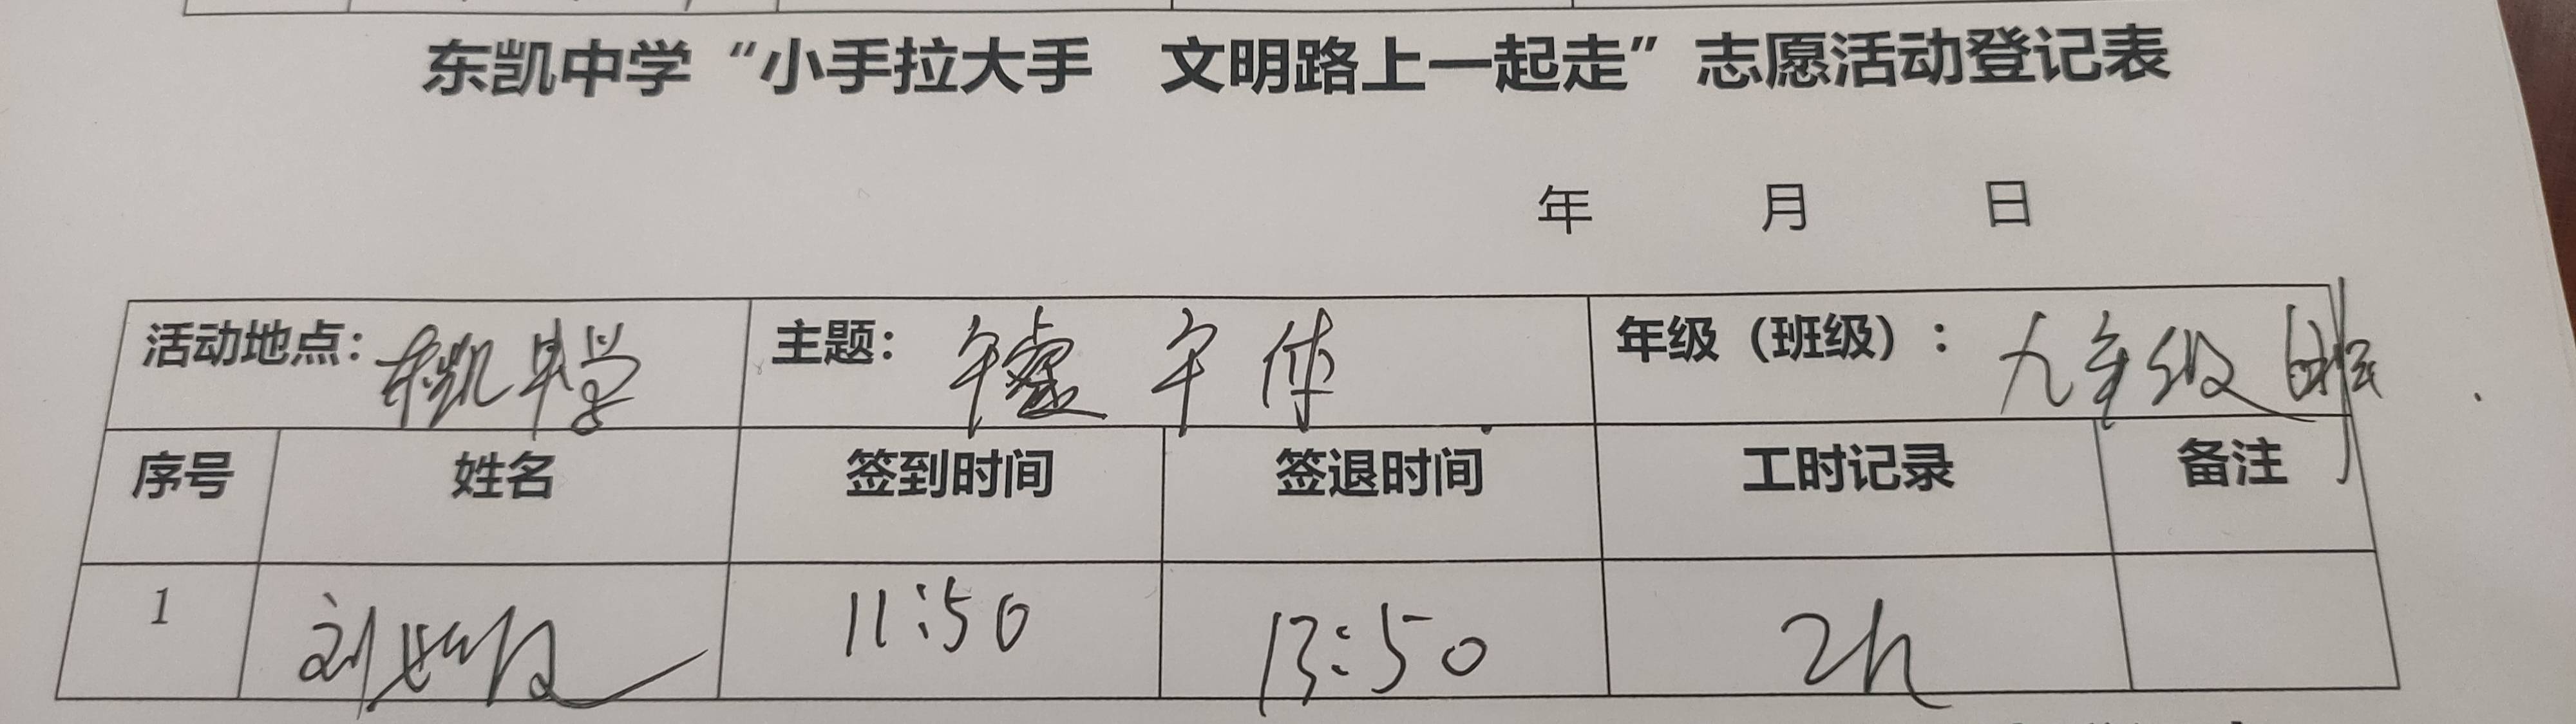 东凯中学“小手拉大手 文明路上一起走”志愿活动登记表
年 月 日
活动地点：东凯中学 主题：午餐午休 年级（班级）：九年级
序号 姓名 签到时间 签退时间 工时记录 备注
1 刘 11:50 13:50 2h